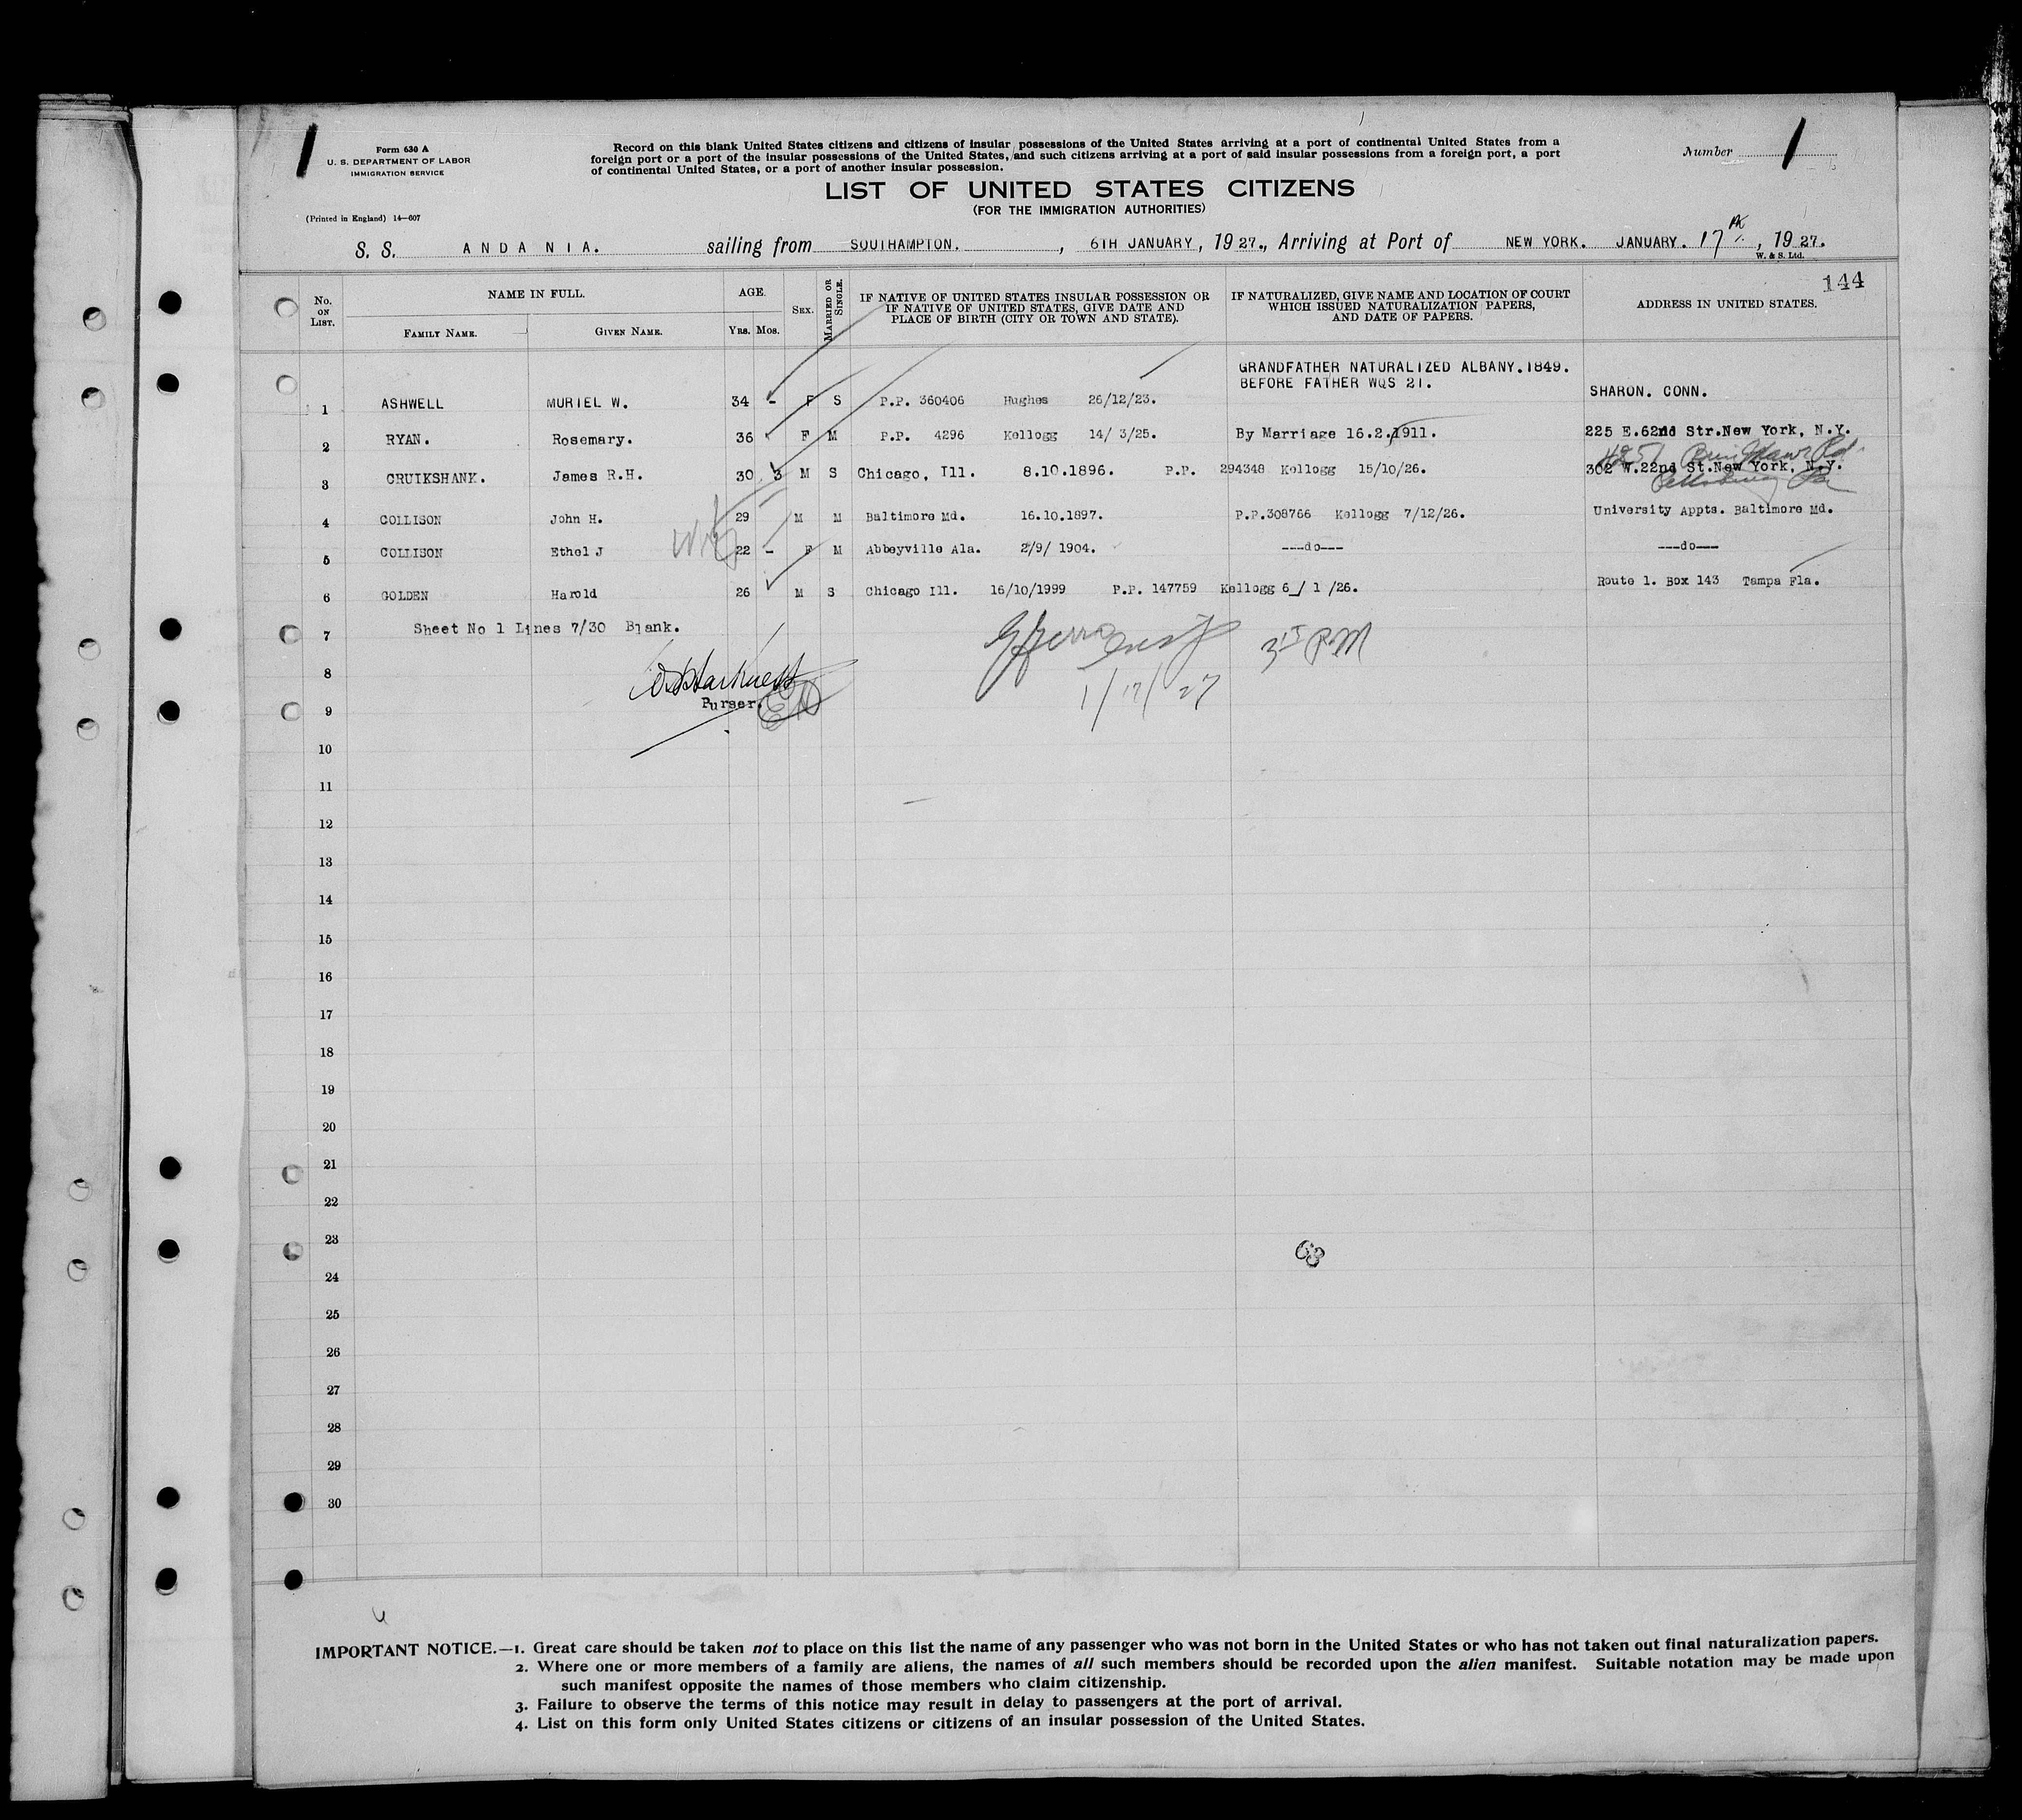 Form 630 A
U. S. DEPARTMENT OF LABOR
IMMIGRATION SERVICE
(Printed in England) 14—607
Record on this blank United States citizens and citizens of insular possessions of the United States arriving at a port of continental United States from a
foreign port or a port of the insular possessions of the United States, and such citizens arriving at a port of said insular possessions from a foreign port, a port
of continental United States, or a port of another insular possession.
Number 1
LIST OF UNITED STATES CITIZENS
(FOR THE IMMIGRATION AUTHORITIES)
S. S. ANDANIA. sailing from SOUTHAMPTON. , 6TH JANUARY, 1927., Arriving at Port of NEW YORK. JANUARY. 17th, 1927.
W. & S. Ltd.
144
No. ON LIST. NAME IN FULL. AGE. SEX. MARRIED OR SINGLE. IF NATIVE OF UNITED STATES INSULAR POSSESSION OR IF NATIVE OF UNITED STATES, GIVE DATE AND PLACE OF BIRTH (CITY OR TOWN AND STATE). IF NATURALIZED, GIVE NAME AND LOCATION OF COURT WHICH ISSUED NATURALIZATION PAPERS, AND DATE OF PAPERS. ADDRESS IN UNITED STATES.
FAMILY NAME. GIVEN NAME. Yrs. Mos.
GRANDFATHER NATURALIZED ALBANY.1849.
BEFORE FATHER WQS 21.
1 ASHWELL MURIEL W. 34 - F S P.P. 360406 Hughes 26/12/23. SHARON. CONN.
2 RYAN. Rosemary. 36 F M P.P. 4296 Kellogg 14/ 3/25. By Marriage 16.2.1911. 225 E.62nd Str.New York, N.Y.
3 CRUIKSHANK. James R.H. 30 3 M S Chicago, Ill. 8.10.1896. P.P. 294348 Kellogg 15/10/26. 302 W.22nd St.New York, N.Y.
4 COLLISON John H. 29 M M Baltimore Md. 16.10.1897. P.P.308766 Kellogg 7/12/26. University Appts. Baltimore Md.
5 COLLISON Ethel J 22 - F M Abbeyville Ala. 2/9/ 1904. ---do--- ---do---
6 GOLDEN Harold 26 M S Chicago Ill. 16/10/1999 P.P. 147759 Kellogg 6 / 1 /26. Route 1. Box 143 Tampa Fla.
7 Sheet No 1 Lines 7/30 Blank.
3 PM
8
Purser.
1/17/27
9
10
11
12
13
14
15
16
17
18
19
20
21
22
23
68
24
25
26
27
28
29
30
IMPORTANT NOTICE.—1. Great care should be taken not to place on this list the name of any passenger who was not born in the United States or who has not taken out final naturalization papers.
2. Where one or more members of a family are aliens, the names of all such members should be recorded upon the alien manifest. Suitable notation may be made upon
such manifest opposite the names of those members who claim citizenship.
3. Failure to observe the terms of this notice may result in delay to passengers at the port of arrival.
4. List on this form only United States citizens or citizens of an insular possession of the United States.